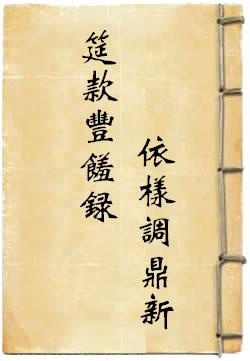 依樣調鼎新
筵款豐饈録